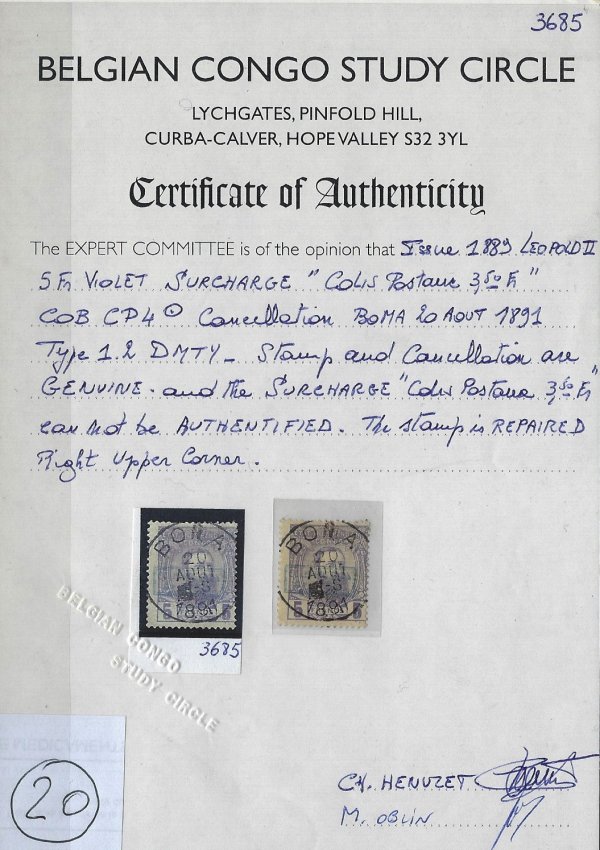 3685
BELGIAN CONGO STUDY CIRCLE
LYCHGATES, PINFOLD HILL,
CURBA-CALVER, HOPE VALLEY S32 3YL
Certificate of Authenticity
The EXPERT COMMITTEE is of the opinion that Issue 1889 LEOPOLD II
5 Fr VIOLET SURCHARGE "COLIS Postaux 3,50 Fr"
COB CP4 Cancellation BOMA 20 AOUT 1891
Type 1.2 DMTY - Stamp and Cancellation are
GENUINE - and the SURCHARGE "Colis Postaux 3,50 Fr"
can not be AUTHENTIFIED. The stamp is REPAIRED
Right Upper Corner.
BOMA
20
AOUT
1891
5 5
BOMA
20
AOUT
1891
5 5
3685
BELGIAN CONGO
STUDY CIRCLE
20
CH. HENUZET
M. OBLIN